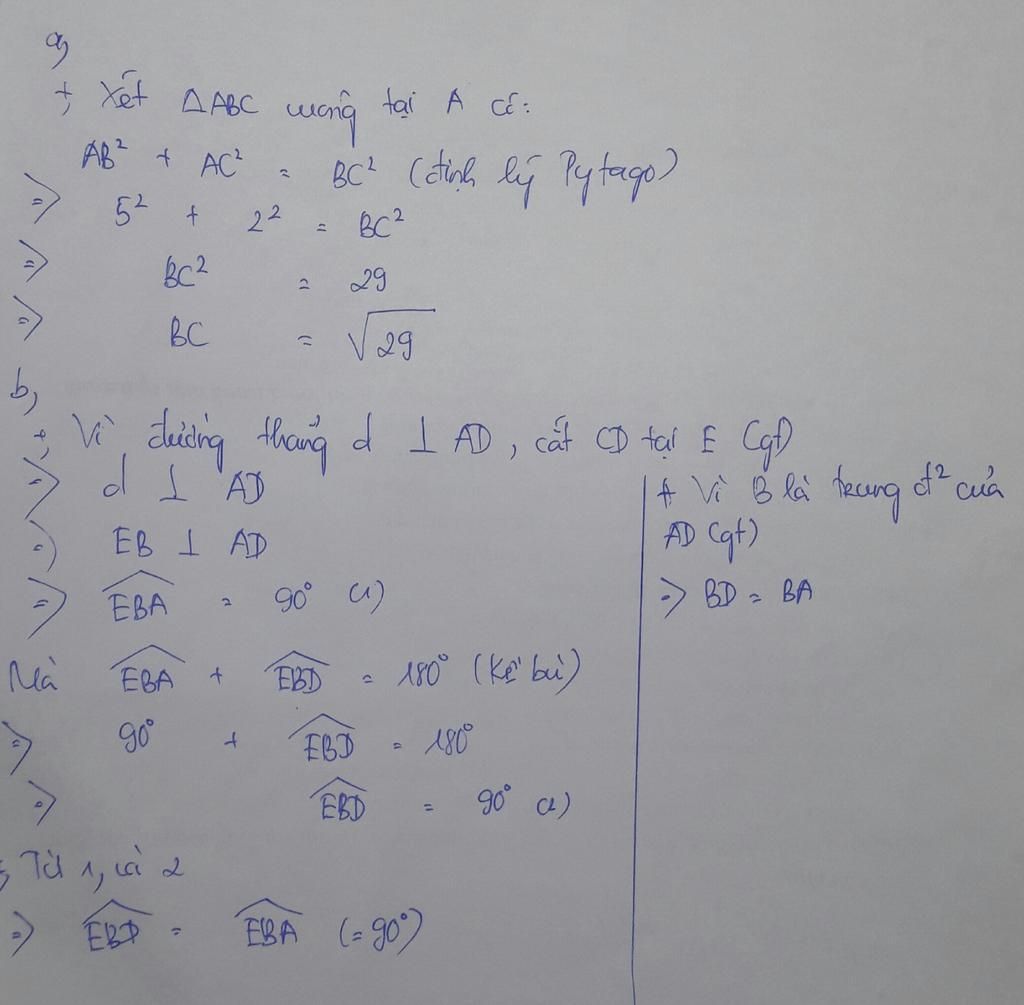 a,
+, Xét ΔABC vuông tại A có:
AB² + AC² = BC² (định lý Pytago)
=> 5² + 2² = BC²
=> BC² = 29
=> BC = √29
b,
+, Vì đường thẳng d ⊥ AD, cắt CD tại E (gt)
=> d ⊥ AD
=> EB ⊥ AD
=> \widehat{EBA} = 90° (1)
Mà \widehat{EBA} + \widehat{EBD} = 180° (kề bù)
=> 90° + \widehat{EBD} = 180°
=> \widehat{EBD} = 90° (2)
+, Từ 1, và 2
=> \widehat{EBD} = \widehat{EBA} (=90°)
+ Vì B là trung đ² của
AD (gt)
=> BD = BA